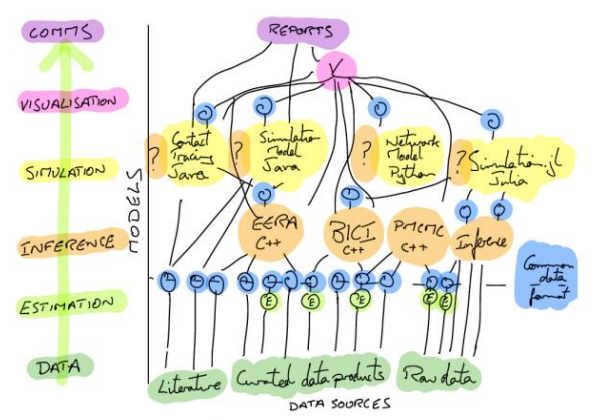 COMMS
REPORTS
V
VISUALISATION
?
Contact
Tracing
Java
?
Simulation
Model
Java
?
Network
Model
Python
?
Simulation.jl
Julia
SIMULATION
MODELS
INFERENCE
EERA
C++
BICI
C++
PMCMC
C++
Inference
Common
data
format
ESTIMATION
E
E
E
E
E
DATA
Literature
Curated data products
Raw data
DATA SOURCES